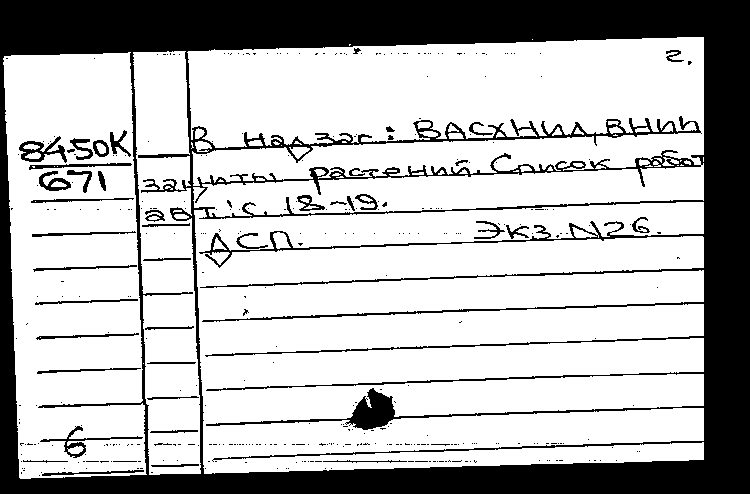 2.
84-50К
671
В надзаг.: ВАСХНИЛ, ВНИИ
защиты растений. Список работ
авт.: с. 18-19.
ДСП. Экз. N26.
6